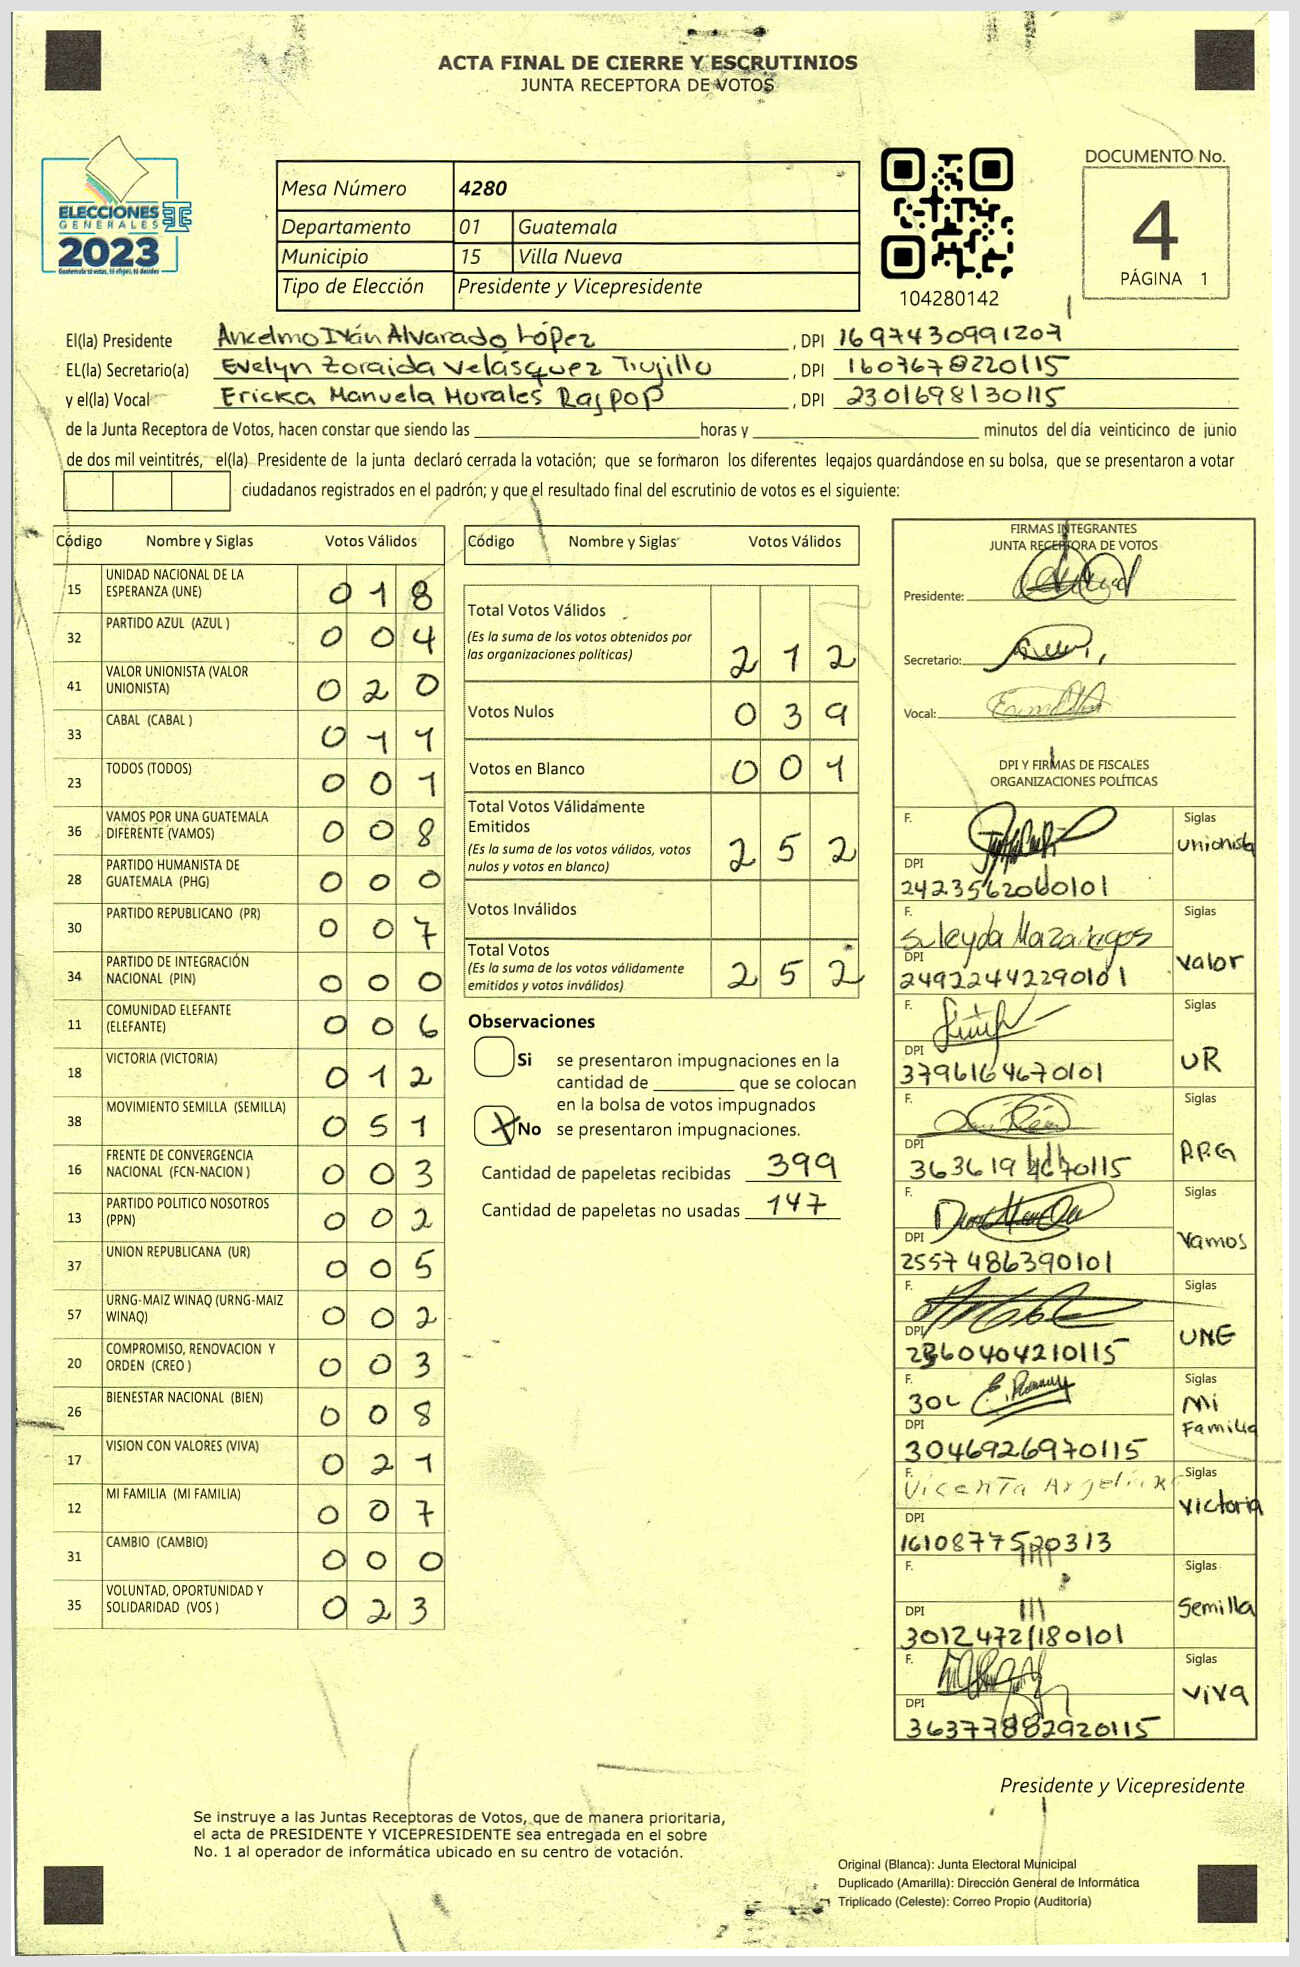 ACTA FINAL DE CIERRE Y ESCRUTINIOS
JUNTA RECEPTORA DE VOTOS
ELECCIONES
GENERALES
2023
Guatemala tú votas, tú eliges, tú decides
Mesa Número 4280
Departamento 01 Guatemala
Municipio 15 Villa Nueva
Tipo de Elección Presidente y Vicepresidente
104280142
DOCUMENTO No.
4
PÁGINA 1
El(la) Presidente Ancelmo Iván Alvarado López, DPI 1697430991207
EL(la) Secretario(a) Evelyn Zoraida Velásquez Trujillo, DPI 1607678220115
y el(la) Vocal Ericka Manuela Morales Raspop, DPI 2301698130115
de la Junta Receptora de Votos, hacen constar que siendo las horas y minutos del día veinticinco de junio
de dos mil veintitrés, el(la) Presidente de la junta declaró cerrada la votación; que se formaron los diferentes legajos quardándose en su bolsa, que se presentaron a votar
ciudadanos registrados en el padrón; y que el resultado final del escrutinio de votos es el siguiente:
Código Nombre y Siglas Votos Válidos
15 UNIDAD NACIONAL DE LA ESPERANZA (UNE) 018
32 PARTIDO AZUL (AZUL ) 004
41 VALOR UNIONISTA (VALOR UNIONISTA) 020
33 CABAL (CABAL ) 011
23 TODOS (TODOS) 001
36 VAMOS POR UNA GUATEMALA DIFERENTE (VAMOS) 008
28 PARTIDO HUMANISTA DE GUATEMALA (PHG) 000
30 PARTIDO REPUBLICANO (PR) 007
34 PARTIDO DE INTEGRACIÓN NACIONAL (PIN) 000
11 COMUNIDAD ELEFANTE (ELEFANTE) 006
18 VICTORIA (VICTORIA) 012
38 MOVIMIENTO SEMILLA (SEMILLA) 051
16 FRENTE DE CONVERGENCIA NACIONAL (FCN-NACION ) 003
13 PARTIDO POLITICO NOSOTROS (PPN) 002
37 UNION REPUBLICANA (UR) 005
57 URNG-MAIZ WINAQ (URNG-MAIZ WINAQ) 002
20 COMPROMISO, RENOVACION Y ORDEN (CREO ) 003
26 BIENESTAR NACIONAL (BIEN) 008
17 VISION CON VALORES (VIVA) 021
12 MI FAMILIA (MI FAMILIA) 007
31 CAMBIO (CAMBIO) 000
35 VOLUNTAD, OPORTUNIDAD Y SOLIDARIDAD (VOS ) 023
Código Nombre y Siglas Votos Válidos
Total Votos Válidos 212
(Es la suma de los votos obtenidos por
las organizaciones políticas)
Votos Nulos 039
Votos en Blanco 001
Total Votos Válidamente
Emitidos 252
(Es la suma de los votos válidos, votos
nulos y votos en blanco)
Votos Inválidos
Total Votos 252
(Es la suma de los votos válidamente
emitidos y votos inválidos)
Observaciones
Si se presentaron impugnaciones en la
cantidad de que se colocan
en la bolsa de votos impugnados
X No se presentaron impugnaciones.
Cantidad de papeletas recibidas 399
Cantidad de papeletas no usadas 147
FIRMAS INTEGRANTES
JUNTA RECEPTORA DE VOTOS
Presidente:
Secretario:
Vocal:
DPI Y FIRMAS DE FISCALES
ORGANIZACIONES POLÍTICAS
F. Siglas Unionista
DPI 2423562060101
F. Suleyda Mazariegos Siglas Valor
DPI 2492244229010 1
F. Siglas UR
DPI 3796164670101
F. Siglas P.P.G
DPI
F. Siglas Vamos
DPI 2557486390101
F. Siglas UNE
DPI
F. Siglas Mi Familia
DPI 3046926970115
F. Vicenta Siglas Victoria
DPI
F. Siglas Semilla
DPI
F. Siglas Viva
DPI 3637788292 0115
Presidente y Vicepresidente
Se instruye a las Juntas Receptoras de Votos, que de manera prioritaria,
el acta de PRESIDENTE Y VICEPRESIDENTE sea entregada en el sobre
No. 1 al operador de informática ubicado en su centro de votación.
Original (Blanca): Junta Electoral Municipal
Duplicado (Amarilla): Dirección General de Informática
Triplicado (Celeste): Correo Propio (Auditoría)